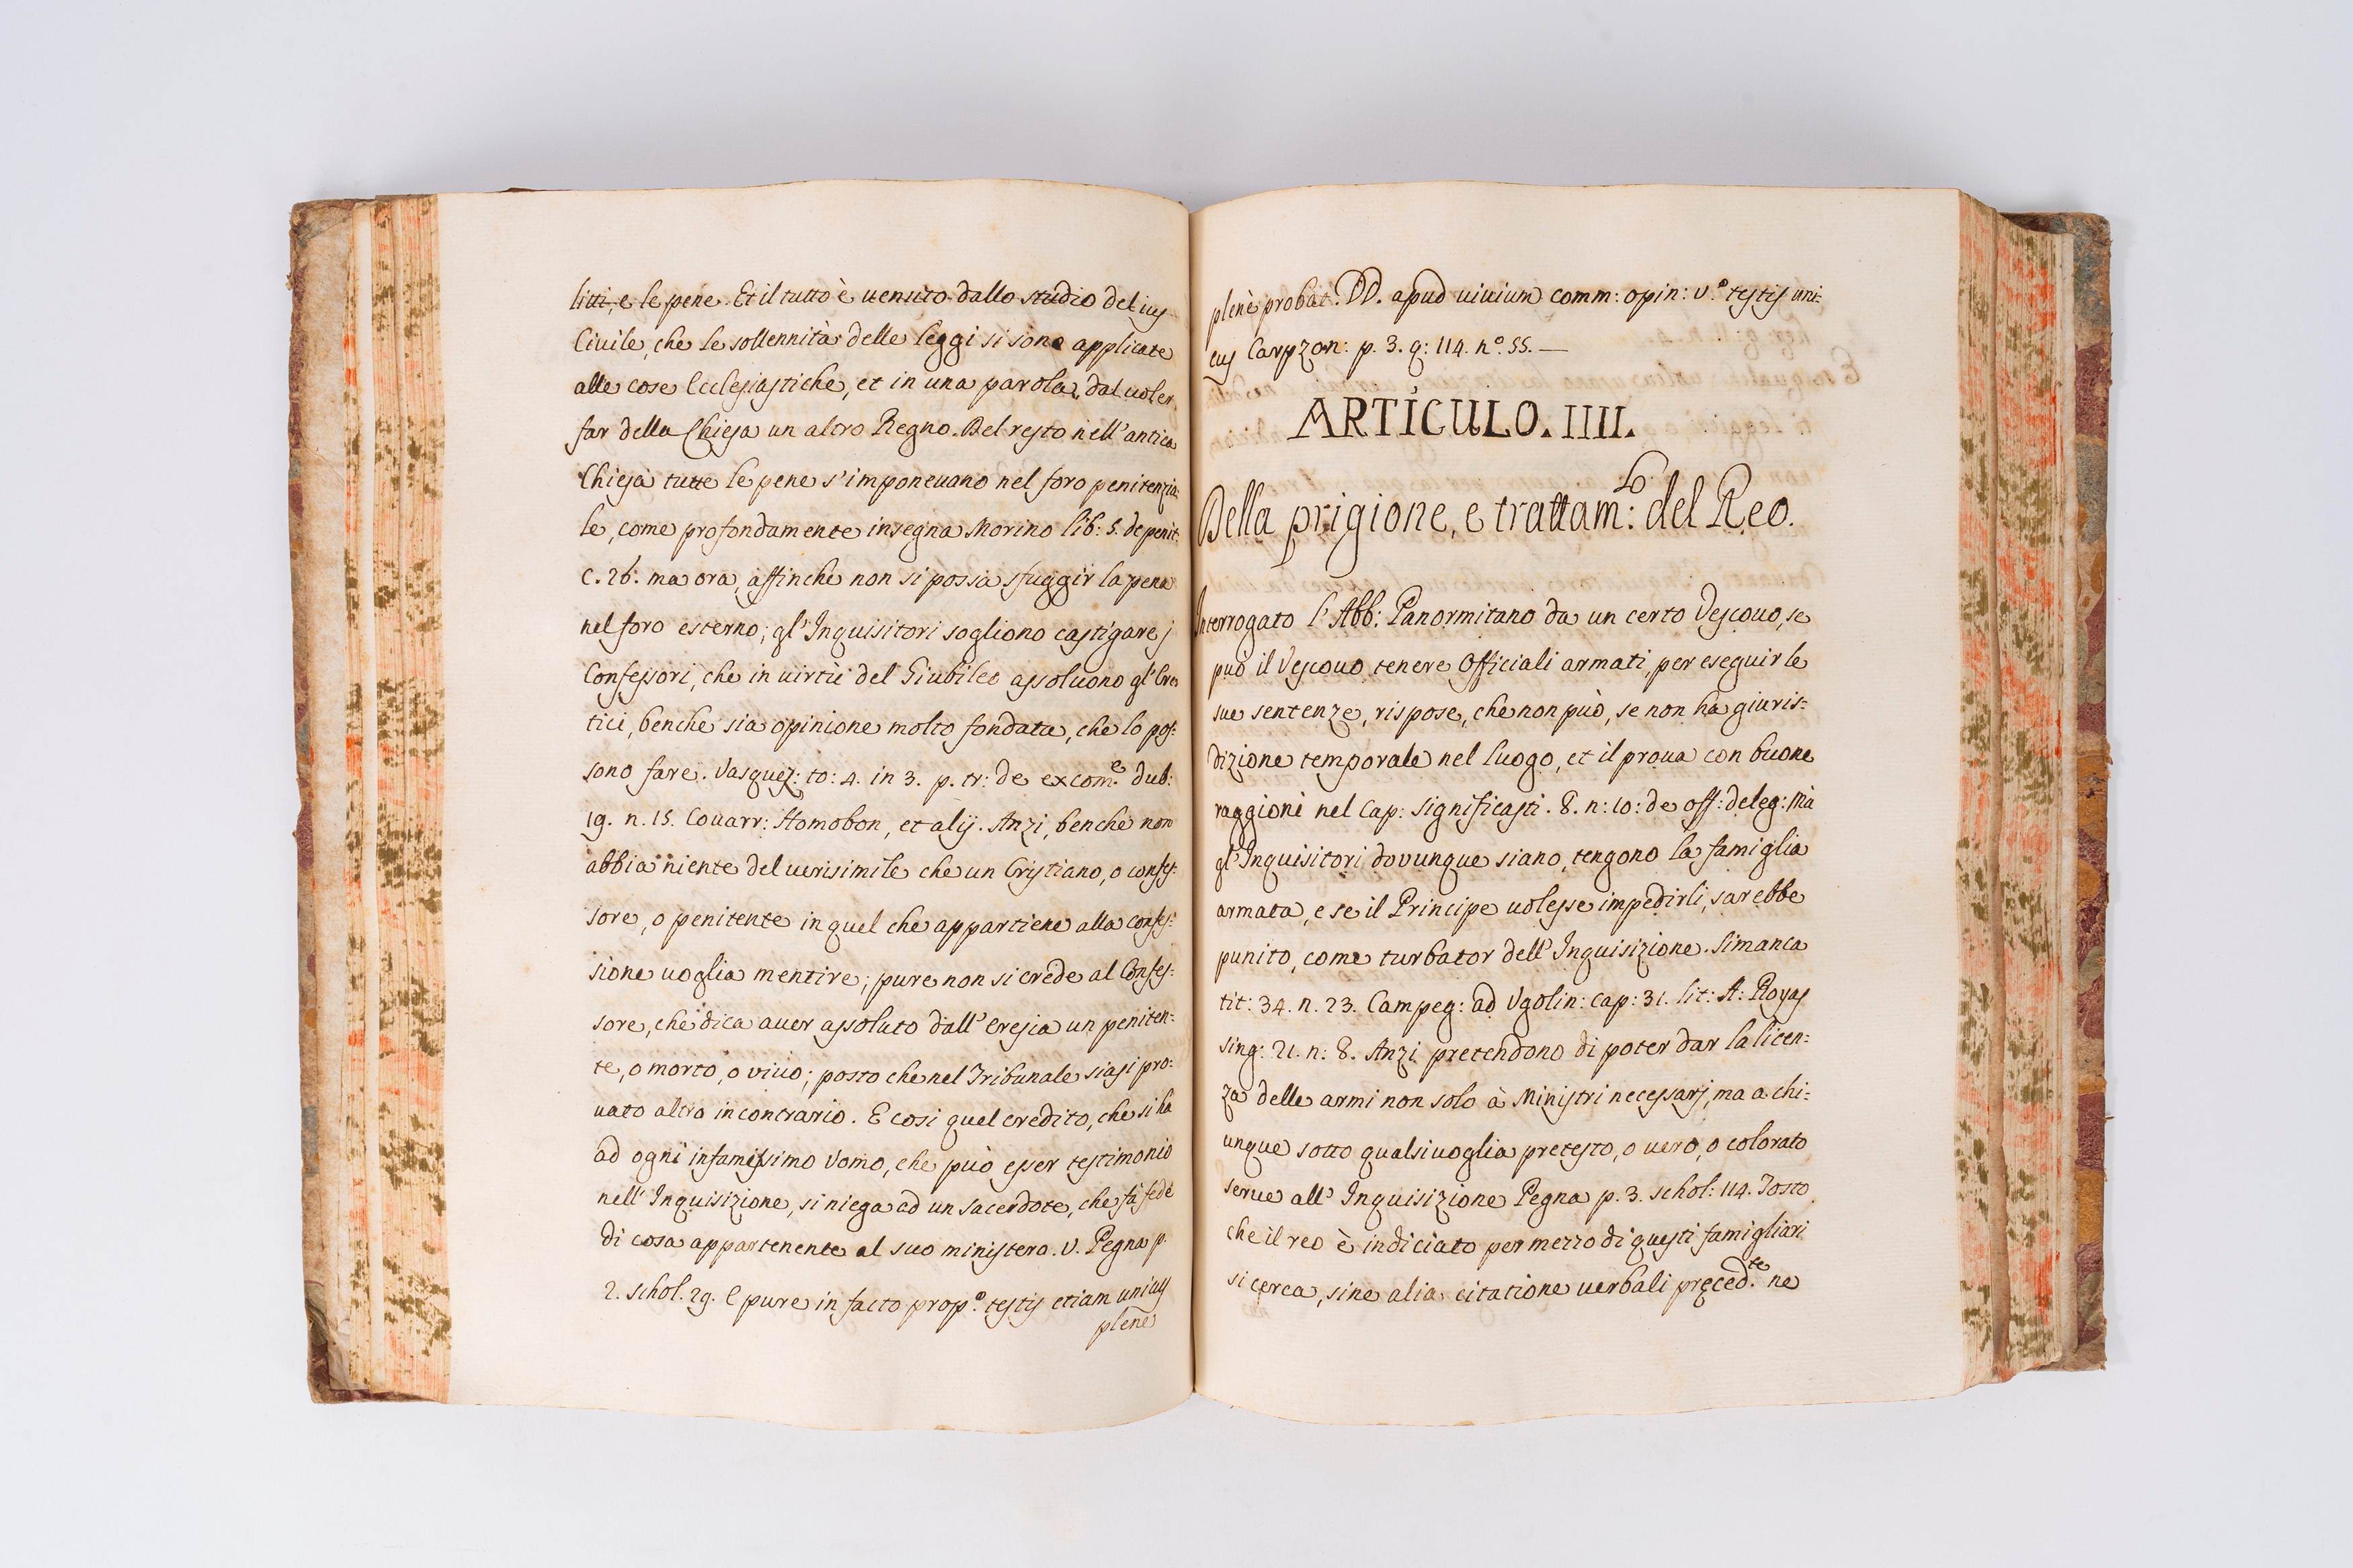 litti, e le pene. Et il tutto è uenuto dallo studio del ius
Ciuile, che le sollennità delle leggi si sono applicate
alle cose Ecclesiastiche, et in una parola, dal uoler
far della Chiesa un altro Regno. Del resto nell' antica
Chiesa tutte le pene s' imponeuano nel foro penitenzia:
le, come profondamente insegna Morino lib: 5. de penit:
c. 26. ma ora, affinche non si possa sfuggir la pena
nel foro esterno; gl' Inquisitori sogliono castigare j
Confessori, che in uirtù del Giubileo assoluono gl' Ere
tici, benche sia opinione molto fondata, che lo pos:
sono fare. Vasquez: to: 4. in 3. p. tr: de excom.e dub:
19. n. 15. Couarr: Homobon, et alij. Anzi, benche non
abbia niente del uerisimile che un Cristiano, o confes:
sore, o penitente in quel che appartiene alla confes:
sione uoglia mentire; pure non si crede al Confes:
sore, che dica auer assoluto dall' eresia un peniten:
te, o morto, o viuo; posto che nel Tribunale siasi pro:
uato altro in contrario. E cosi quel credito, che si ha
ad ogni infamissimo Vomo, che può esser testimonio
nell' Inquisizione, si niega ad un sacerdote, che fà fede
di cosa appartenente al suo ministero. V. Pegna p.
2. schol. 29. E pure in facto prop.o testis etiam unicus
plene
plenè probat. DD. apud uiuium comm: opin: v.o testis uni:
cus Carpzon: p. 3. q: 114. n.o 55. —
ARTICULO. IIII.
Della prigione, e trattam:to del Reo.
Interrogato l' Abb: Panormitano da un certo Vescouo, se
può il Vescouo tenere Officiali armati, per eseguir le
sue sentenze, rispose, che non può, se non ha giuris:
dizione temporale nel luogo, et il proua con buone
raggioni nel Cap: significasti. 8. n: 10: de off: deleg: Mà
gl' Inquisitori dovunque siano, tengono la famiglia
armata, e se il Principe uolesse impedirli, sarebbe
punito, come turbator dell' Inquisizione. Simanca
tit: 34. n. 23. Campeg: ad Vgolin: cap: 31. lit: A: Royas
sing: 21. n: 8. Anzi pretendono di poter dar la licen:
za delle armi non solo à Ministri necessarj, ma a chi:
unque sotto qualsiuoglia pretesto, o uero, o colorato
serue all' Inquisizione Pegna p. 3. schol: 114. Tosto
che il reo è indiciato per mezzo di questi famigliari
si cerca, sine alia citatione uerbali preced.te ne